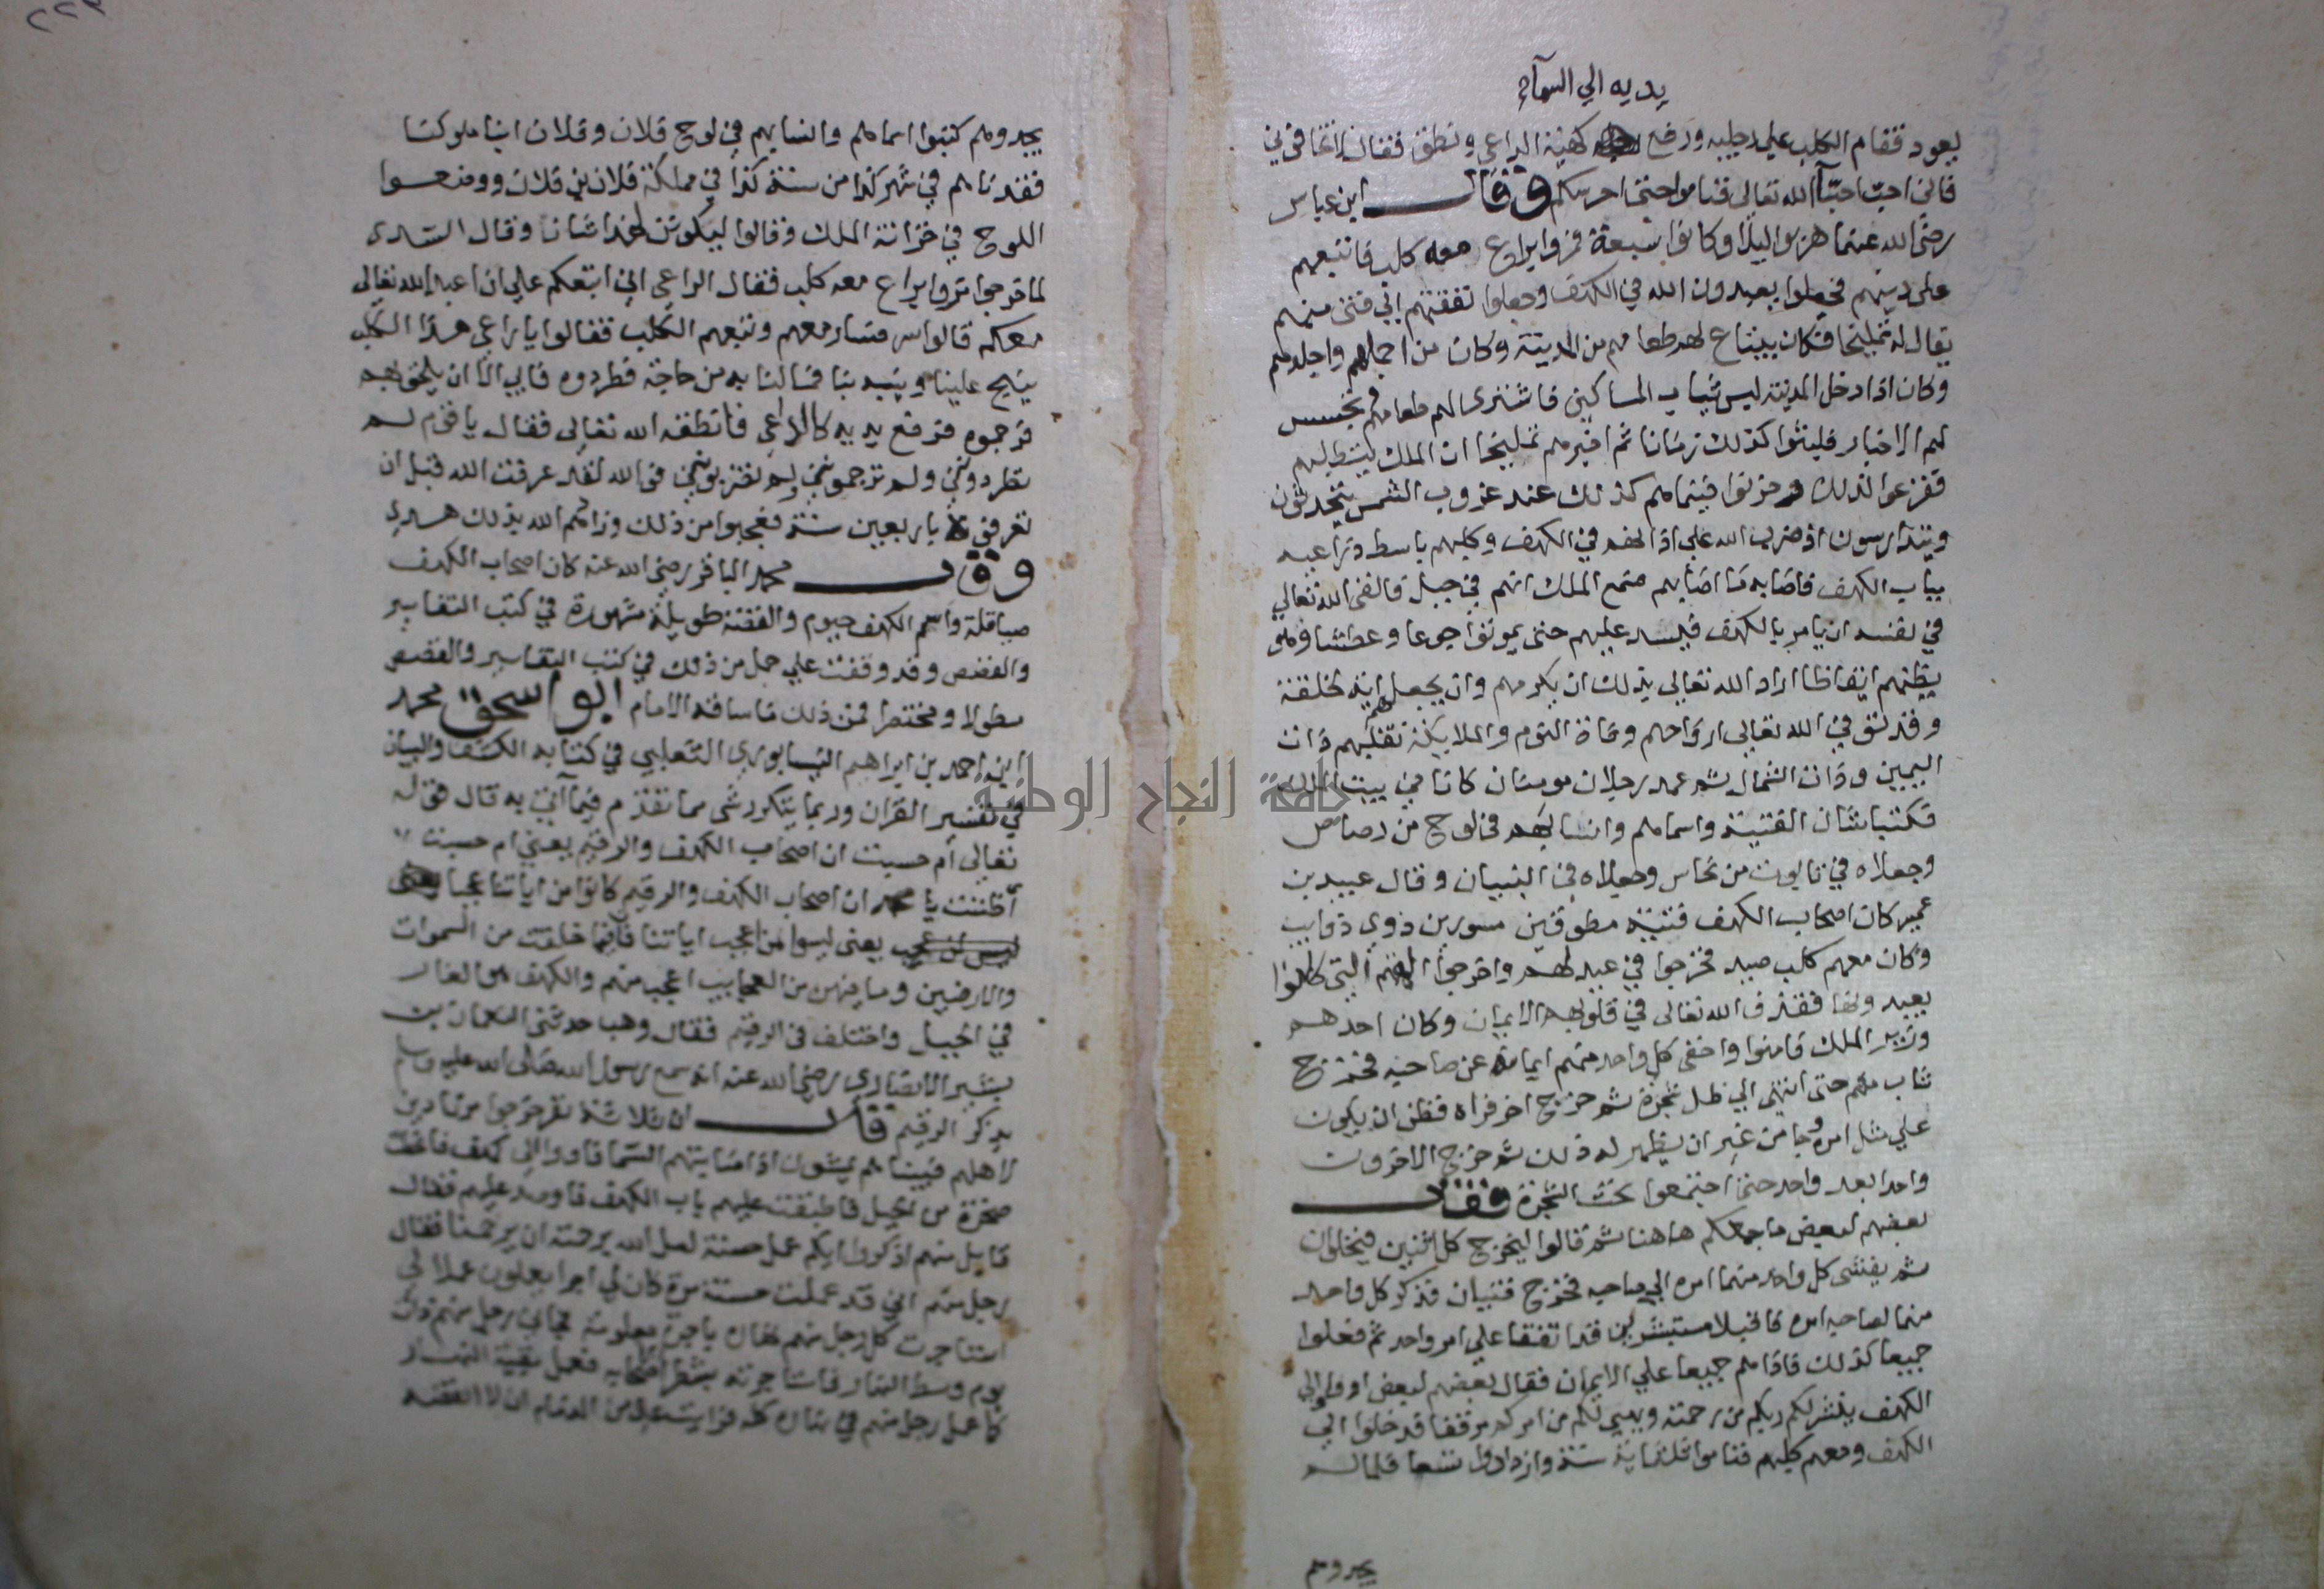 يديه الي السمآء
يعود فقام الكلب علي رجليه ورفع كهيئة الداعي ونطق فقال لا تخافوني
فاني احبّ احبّآ الله تعالي فناموا حتي احرسكم وقال ابن عباس
رضي الله عنهما هربوا ليلا وكانوا سبعة فمروا براع معه كلب فاتبعهم
علي دينهم فجعلوا يعبدون الله في الكهف وجعلوا نفقتهم الي فتي منهم
يقال له تمليخا فكان يبتاع لهم طعامهم من المدينة وكان من اجملهم واجلدهم
وكان اذا دخل المدينة لبس ثياب المساكين فاشتري لهم طعامهم وتجسس
لهم الاخبار فلبثوا كذلك زمانا ثم اخبرهم تمليخا ان الملك يتطلبهم
ففزعوا لذلك وحزنوا فبينما هم كذلك عند غروب الشمس يتحدثون
ويتدارسون اذ ضرب الله علي اذانهم في الكهف وكلبهم باسط ذراعيه
بباب الكهف فاصابه ما اصابهم فسمع الملك انهم في جبل فالقي الله تعالي
في نفسه ان يامر بالكهف فيسد عليهم حتي يموتوا جوعا وعطشا وهو
يظنهم ايقاظا اراد الله تعالي بذلك ان يكرمهم وان يجعلهم اية لخلقه
وقد توفي الله تعالي ارواحهم وفاة النوم والملايكة تقلبهم ذات
اليمين وذات الشمال ثم عمد رجلان مومنان كانا في بيت الملك
فكتبا شان الفتية واسماهم وانسابهم في لوح من رصاص
وجعلاه في تابوت من نحاس وجعلاه في البنيان وقال عبيد بن
عمير كان اصحاب الكهف فتية مطوقين مسورين ذوي ذوايب
وكان معهم كلب صيد فخرجوا في عيد لهم واخرجوا الهتهم التي كانوا
يعبدونها فقذف الله تعالي في قلوبهم الايمان وكان احدهم
وزير الملك فامنوا واخفي كل واحد منهم ايمانه عن صاحبه فخرج
شاب منهم حتي انتهي الي ظل شجرة ثم خرج اخر فراه فظن ان يكون
علي مثل امره وجا من غير ان يظهر له ذلك ثم خرج الاخرون
واحدا بعد واحد حتي اجتمعوا تحت الشجرة فقال
بعضهم لبعض ما جمعكم هاهنا ثم قالوا ليخرج كل اثنين فيخلوان
ثم يفشي كل واحد منهما امره الي صاحبه فخرج فتيان فذكر كل واحد
منهما لصاحبه امره فاقبلا مستبشرين قد اتفقا علي امر واحد ثم فعلوا
جميعا كذلك فاذا هم جميعا علي الايمان فقال بعضهم لبعض اووا الي
الكهف ينشر لكم ربكم من رحمته ويهيي لكم من امركم مرفقا فدخلوا الي
الكهف ومعهم كلبهم فناموا ثلثماية سنة وازدادوا تسعا فلما لم
يجدوهم
يجدوهم كتبوا اسماهم وانسابهم في لوح فلان وفلان ابنا ملوكنا
فقدناهم في شهر كذا من سنة كذا في مملكة فلان بن فلان ووضعوا
اللوح في خزانة الملك وقالوا ليكونن لهذا شانا وقال السدي
لما خرجوا مروا براع معه كلب فقال الراعي اني اتبعكم علي ان اعبد الله تعالي
معكم قالوا سر فسار معهم وتبعهم الكلب فقالوا يا راعي هذا الكلب
ينبح علينا وينبه بنا فما لنا به من حاجة فطردوه فابي الا ان يلحق بهم
فرجموه فرفع يديه كالداعي فانطقه الله تعالي فقال يا قوم لم
تطردونني ولم ترجمونني ولم تضربونني فوالله لقد عرفت الله قبل ان
تعرفوه باربعين سنة فعجبوا من ذلك وزادهم الله بذلك هدي
وقال محمد الباقر رضي الله عنه كان اصحاب الكهف
صياقلة واسم الكهف حيوم والقصة طويلة مشهورة في كتب التفاسير
والقصص وقد وقفت علي جمل من ذلك في كتب التفاسير والقصص
مطولا ومختصرا فمن ذلك ما ساقه الامام ابو اسحق محمد
ابن احمد بن ابراهيم النيسابوري الثعلبي في كتابه الكشف والبيان
في تفسير القران وربما يتكرر شي مما تقدم فيما آتي به قال قوله
تعالي أم حسبت ان اصحاب الكهف والرقيم يعني ام حسبت
أظننت يا محمد ان اصحاب الكهف والرقيم كانوا من اياتنا عجبا
يعني ليسوا من اعجب اياتنا فانما خلقت من السموات
والارضين وما فيهن من العجايب اعجب منهم والكهف هو الغار
في الجبل واختلف في الرقيم فقال وهب حدثني النعمان بن
بشير الانصاري رضي الله عنه انه سمع رسول الله صلي الله عليه وسلم
يذكر الرقيم قال ان ثلاثة نفر خرجوا مرتادين
لاهلهم فبينا هم يمشون اذ اصابتهم السما فاووا الي كهف فانحطت
صخرة من الجبل فاطبقت عليهم باب الكهف فاوصد عليهم فقال
قايل منهم اذكروا ايكم عمل حسنة لعل الله برحمته ان يرحمنا فقال
رجل منهم اني قد عملت حسنة مرة كان لي اجرا يعملون عملا لي
استاجرت كل رجل منهم باجرة معلومة فجاني رجل منهم ذات
يوم وسط النهار فاستاجرته بشطر اصحابه فعمل بقية النهار
كما عمل رجل منهم في نهاره كله فرايت علي من الذمام ان لا انقصه
جامعة النجاح الوطنية